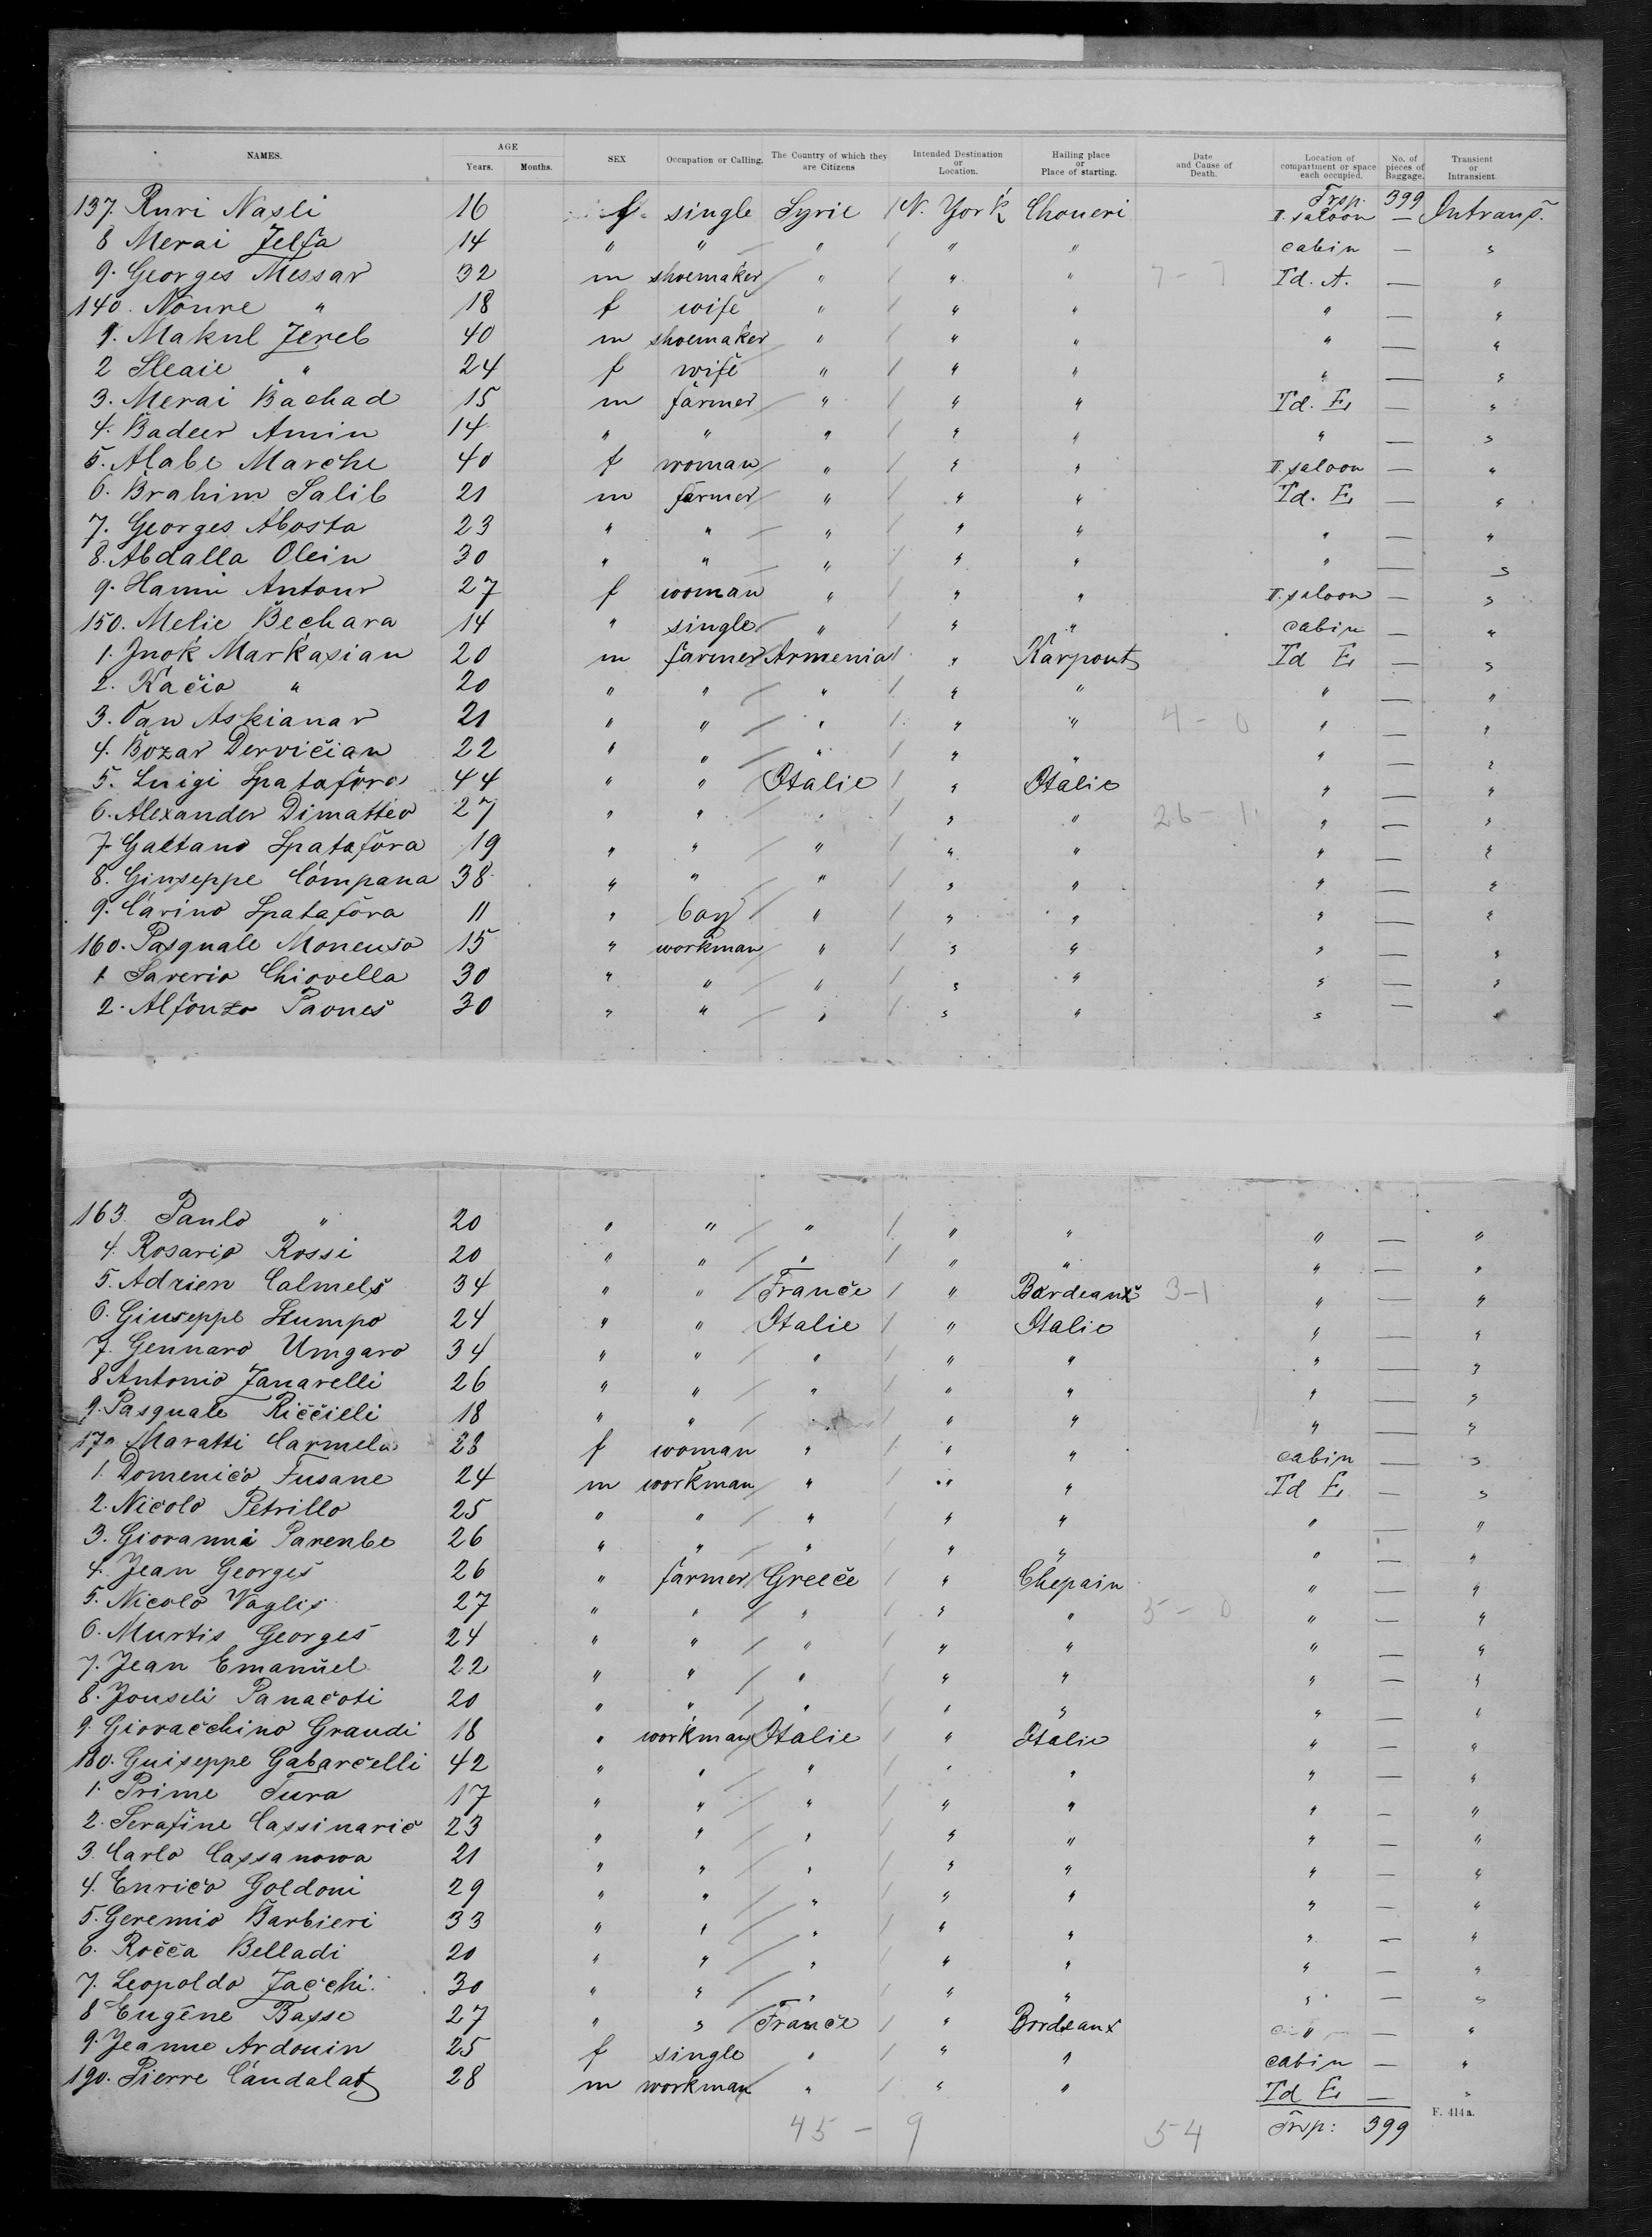 NAMES. AGE Years. Months. SEX Occupation or Calling. The Country of which they are Citizens Intended Destination or Location. Hailing place or Place of starting. Date and Cause of Death. Location of compartment or space each occupied. No. of pieces of Baggage. Transient or Intransient.
Trsp. 399
137. Ruri Nasli 16 f. single Syrie / N. York Choueri II. saloon — Intrans.
8 Merai Zelfa 14 " " / " / " " cabin — "
9. Georges Messar 32 m shoemaker / " / " " 7 - 7 Td. A. — "
140. Noure " 18 f wife " / " " " — "
1. Makul Zereb 40 m shoemaker " / " " " — "
2 Sleaie " 24 f wife " / " " " — "
3. Merai Bachad 15 m farmer / " / " " Td. E. — "
4. Badeer Amin 14 " " / " / " " " — "
5. Alabe Marche 40 f woman / " / " " II. saloon — "
6. Brahim Salib 21 m farmer / " / " " Td. E. — "
7. Georges Abosta 23 " " / " / " " " — "
8. Abdalla Olein 30 " " / " / " " " — "
9. Hanni Antour 27 f woman " / " " II. saloon — "
150. Melie Bechara 14 " single / " / " " cabin — "
1. Jnok Markasian 20 m farmer Armenia / " Karpout Td E. — "
2. Kačio " 20 " " / " / " " " — "
3. Oan Askianar 21 " " / " / " " 4 - 0 " — "
4. Bozar Dervičian 22 " " / " / " " " — "
5. Luigi Spatafora 44 " " Italie / " Italie " — "
6. Alexander Dimatteo 27 " " " / " " 26 - 1 " — "
7. Gaetano Spatafora 19 " " / " / " " " — "
8. Giuseppe Compana 38 " " / " / " " " — "
9. Carino Spatafora 11 " boy / " / " " " — "
160. Pasquale Moneuso 15 " workman / " / " " " — "
1 Saverio Chiovella 30 " " / " / " " " — "
2. Alfonzo Paones 30 " " / " / " " " — "
163. Paulo " 20 " " / " / " " " — "
4. Rosario Rossi 20 " " / " / " " " — "
5. Adrien Calmels 34 " " / France / " Bordeaux 3-1 " — "
6. Giuseppe Stumpo 24 " " Italie / " Italie " — "
7. Gennaro Umgaro 34 " " / " / " " " — "
8 Antonio Zanarelli 26 " " / " / " " " — "
9. Pasquale Riččielli 18 " " / " / " " " — "
170 Maratti Carmela 23 f woman " / " " cabin — "
1. Domenico Fusane 24 m workman / " / " " Td E. — "
2. Nicolo Petrillo 25 " " / " / " " " — "
3. Giovanni Parenbe 26 " " / " / " " " — "
4. Jean Georges 26 " farmer / Greece / " Chepain " — "
5. Nicolo Vaglis 27 " " / " / " " 5 - 0 " — "
6. Murtis Georges 24 " " / " / " " " — "
7. Jean Emanuel 22 " " / " / " " " — "
8. Jouseli Panacoti 20 " " / " / " " " — "
9. Giovacchino Graudi 18 " workman Italie / " Italie " — "
180. Guiseppe Gabarcelli 42 " " / " / " " " — "
1. Prime Tura 17 " " / " / " " " — "
2. Serafine Cassinarie 23 " " / " / " " " — "
3. Carlo Cassanowa 21 " " / " / " " " — "
4. Enrico Goldoni 29 " " / " / " " " — "
5. Geremio Barbieri 33 " " / " / " " " — "
6. Rocca Belladi 20 " " / " / " " " — "
7. Leopoldo Zacchi. 30 " " / " / " " " — "
8 Eugêne Basse 27 " " / France / " Bordeaux " — "
9. Jeanne Ardouin 25 f single " / " " cabin — "
190. Pierre Candalat 28 m workman / " / " " Td E. — "
F. 414a.
45 - 9 54 Trsp: 399